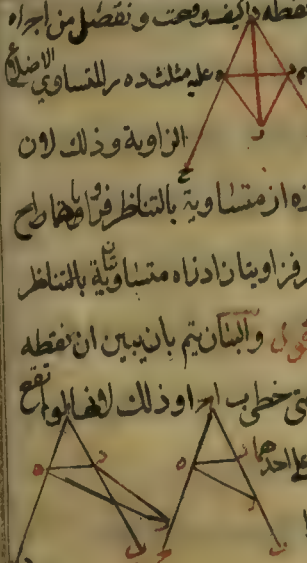 نقطه د كيف وقعت ونفصل من اجراه
وعليه مثلث ده ر المتساوي الاضلاع
الزاوية وذلك لان
ده از متساوية بالتناظر فزاو
فزاويتا ن ادزاه متساويتان بالتناظر
اقول والبيان يتم بان يبين ان نقطه
خطي ب ا ج ا وذلك لانها لو لم تقع
على احدهما